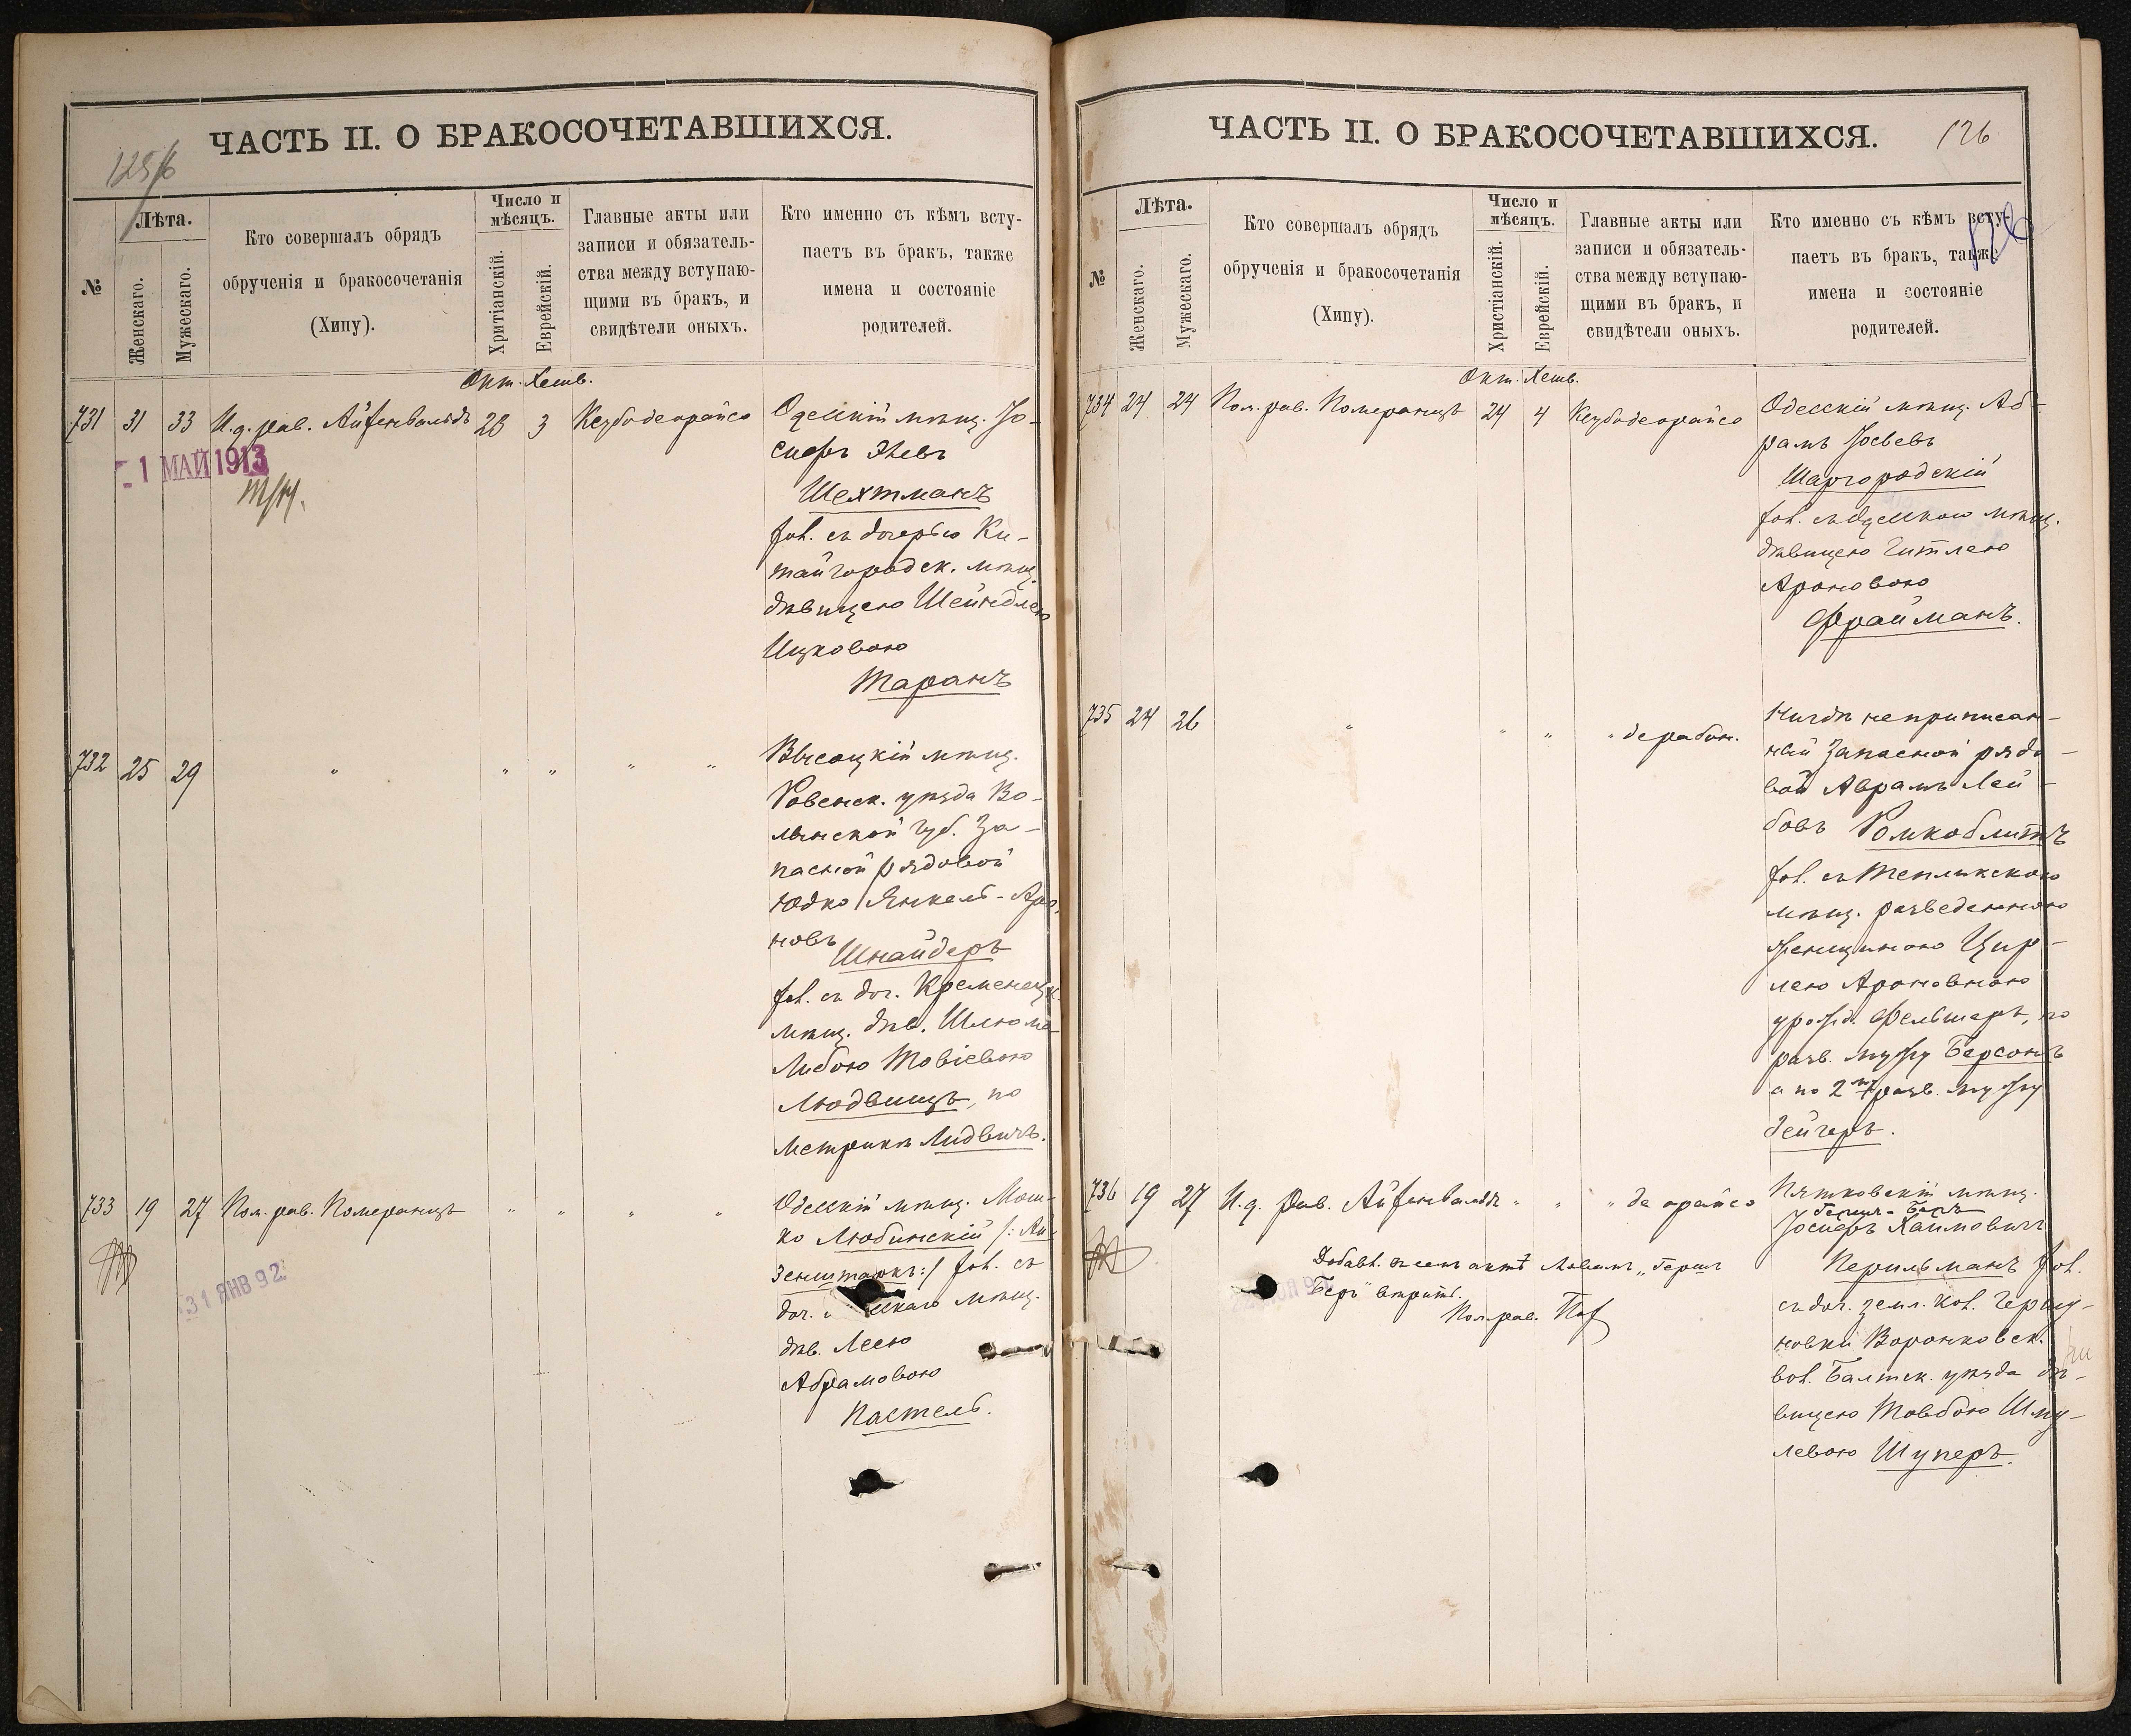 ЧАСТЬ II. О БРАКОСОЧЕТАВШИХСЯ.
125/6
№
Лѣта.
Женскаго.
Мужескаго.
Кто совершалъ обрядъ
обрученія и бракосочетанія
(Хипу).
Число и
мѣсяцъ.
Хритіанскій.
Еврейскій.
Главные акты или
записи и обязатель-
ства между вступаю-
щими въ бракъ, и
свидѣтели оныхъ.
Кто именно съ кѣмъ всту-
паетъ въ бракъ, также
имена и состояніе
родителей.
Окт. Хешв.
731 31 33 И.д. рав. Айзенвальдъ 23 3 Кезубодеорайсо
1 МАЙ 1913
Одесскій мѣщ. Іо-
сифъ
Шехтманъ
хол. съ дочерью Ки-
тайгородск. мѣщ.
дѣвицею Шейндлею
Ицковою
Таранъ
732 25 29 " " " " "
Высоцкій мѣщ.
Ровенск. уѣзда Во-
лынской губ. За-
пасной рядовой
Юдко Янкель-Аро-
новъ
Шнайдеръ
хол. съ доч. Кременецк.
мѣщ. дѣв. Шлюма-
Либою Товіевою
Людвицъ, по
Метрикѣ Лидвичъ.
733 19 27 Пом. рав. Померанцъ " " " "
Одесскій мѣщ. Мош-
ко Любинскій /: Ай-
зенштаркъ :/ хол. съ
доч. скаго мѣщ.
дѣв. Леею
Абрамовою
Пастель.
31 ЯНВ 92
ЧАСТЬ II. О БРАКОСОЧЕТАВШИХСЯ.
126
№
Лѣта.
Женскаго.
Мужескаго.
Кто совершалъ обрядъ
обрученія и бракосочетанія
(Хипу).
Число и
мѣсяцъ.
Христіанскій.
Еврейскій.
Главные акты или
записи и обязатель-
ства между вступаю-
щими въ бракъ, и
свидѣтели оныхъ.
Кто именно съ кѣмъ всту-
паетъ въ бракъ, также
имена и состояніе
родителей.
Окт. Хешв.
734 24 24 Пом. рав. Померанцъ 24 4 Кезубодеорайсо
Одесскій мѣщ. Аб-
рамъ Іосьевъ
Шаргородскій
хол. съ Одесскою мѣщ.
дѣвицею Гитлею
Ароновою
Фрайманъ.
735 24 26 " " " " дерабон.
Нигдѣ неприписан-
ный Запасной рядо-
вой Аврамъ Лей-
бовъ Ромкоблитъ
хол. съ Тепликскою
мѣщ. разведенною
женщиною Цир-
лею Ароновною
урожд. Фельшеръ, по
разв. мужу Берсонъ
а по 2му разв. мужу
Зейгеръ.
736 19 27 И.д. Рав. Айзенвальдъ " " " де орайсо
Пятковскій мѣщ.
Гершъ-Беръ
Іосифъ Хаимовичъ
Перильманъ хол.
съ доч. земл. кол. Гершу-
новки Воронковск.
вол. Балтск. уѣзда дѣ-
вицею Товбою Шму-
левою Шуперъ.
Добавл. въ семъ актѣ словамъ „Гершъ
Беръ" вѣрить.
Пом. рав.